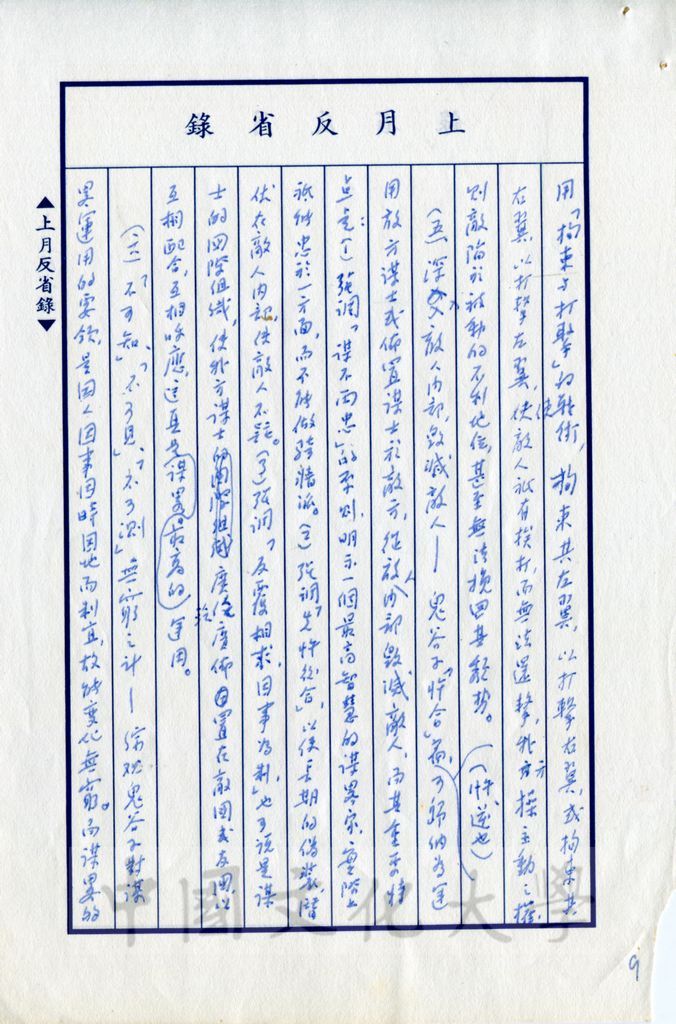 上月反省錄
用「拘束與打擊」的戰術，拘束其左翼，以打擊右翼，或拘束其
右翼，以打擊左翼，使敵人祇有挨打，而無法還擊，我方操主動之權，
則敵陷於被動的不利地位，甚至無法挽回其頹勢。
（五）深入敵人內部，毀滅敵人—鬼谷子「忤合」篇，（忤，逆也）可歸納為運
用敵方謀士或佈置謀士於敵方，從敵人內部毀滅敵人，而其重要特
點是：(1)強調「謀不兩忠」的原則，明示一個最高智慧的謀略家，實際上
祇能忠於一方面，而不能做騎牆派。(2)強調「先忤後合」，以使長期的偽裝潛
伏在敵人內部，使敵人不疑。(3)強調「反覆相求，因事為制」，也可說是謀
士的國際組織，使我方謀士廣泛佈置在敵國或友國，以
互相配合，互相呼應，這真是謀略最高的運用。
（六）「不可知」、「不可見」、「不可測」無窮之計—綜觀鬼谷子對謀
略運用的要領，是因人因事因時因地而制宜，故能變化無窮。而謀略的
▲上月反省錄▼
中國文化大學
9